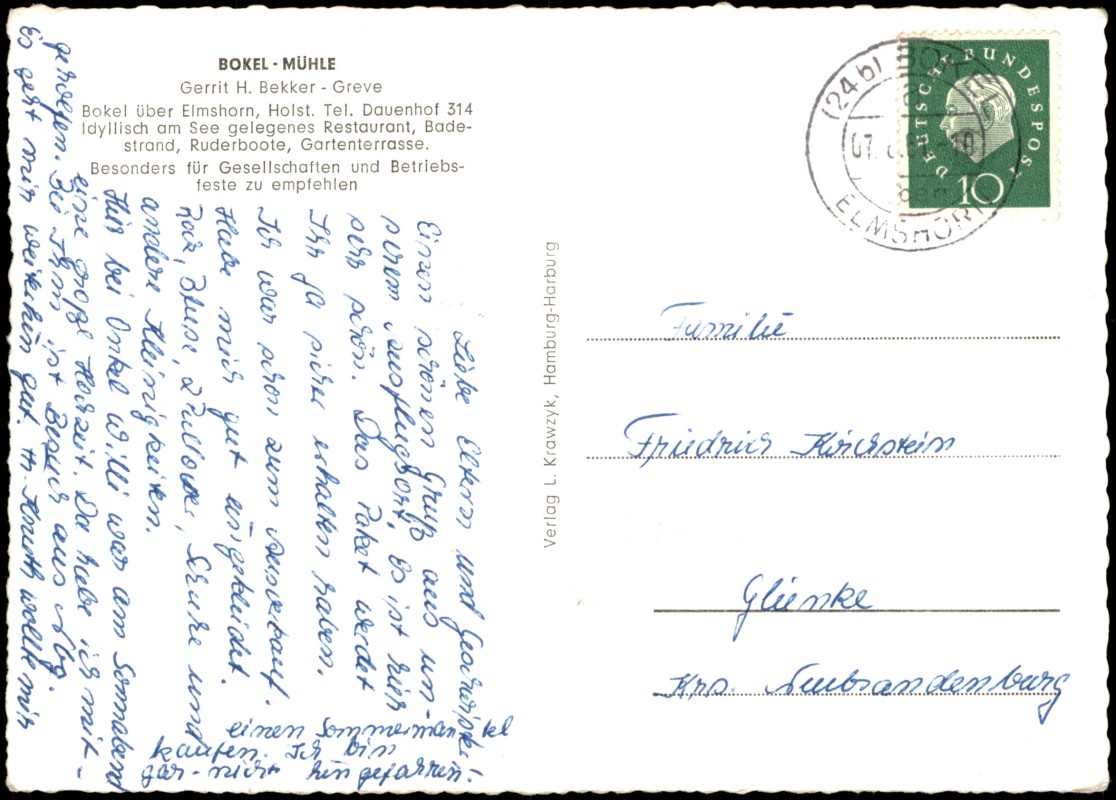 BOKEL - MÜHLE
Gerrit H. Bekker - Greve
Bokel über Elmshorn, Holst. Tel. Dauenhof 314
Idyllisch am See gelegenes Restaurant, Bade-
strand, Ruderboote, Gartenterrasse.
Besonders für Gesellschaften und Betriebs-
feste zu empfehlen
Liebe Eltern und Geschwister
Einen schönen Gruß aus un-
serem Ausflugsort, Es ist hier
sehr schön. Das Paket werdet
Ihr ja sicher erhalten haben.
Ich war schon zum Ausverkauf.
Habe mich gut eingekleidet.
Rock, Bluse, 2 Pullover, Schuhe und
andere Kleinigkeiten.
Hier bei Onkel Willi war am Sonnabend
eine große Hochzeit. Da habe ich mit-
gewesen. Bei Ihm ist Besuch aus Nbg.
Es geht mir weiterhin gut. Fr. Knuth wollte mir
einen Sommermantel
kaufen. Ich bin
gar-nicht hingefahren.
Verlag L. Krawzyk, Hamburg-Harburg
(24b) BOKEL
ELMSHORN
DEUTSCHE BUNDESPOST
10
Familie
Friedrich Kirchstein
Glienke
Krs. Neubrandenburg